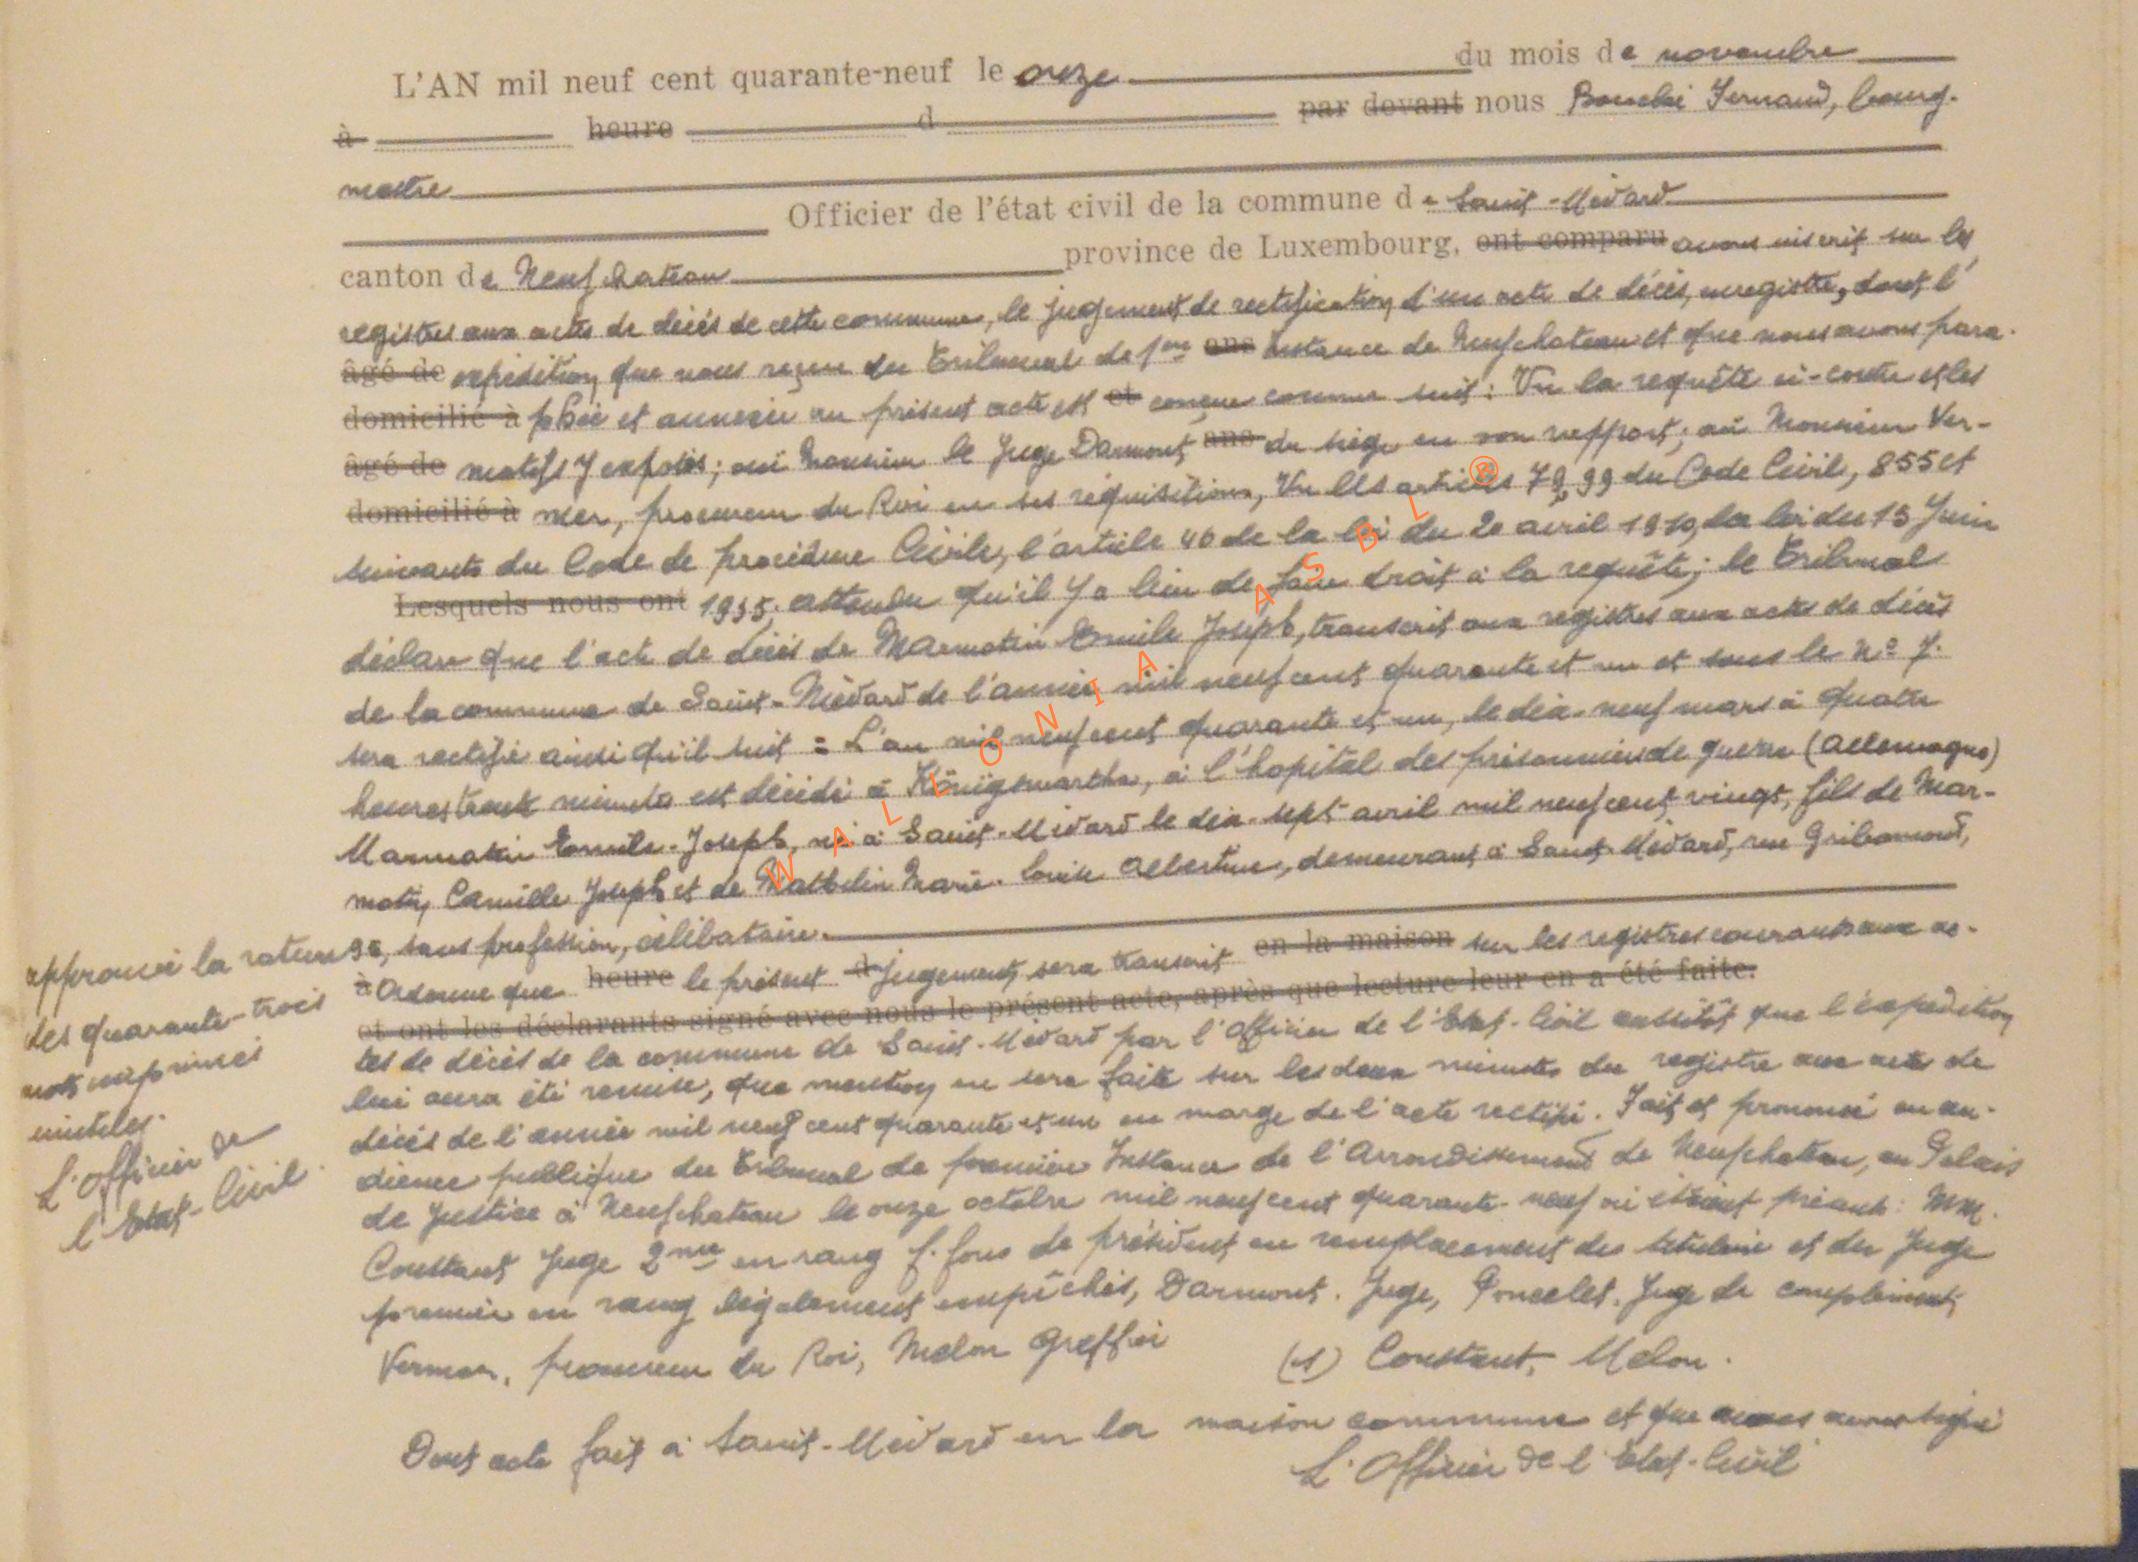 L'AN mil neuf cent quarante-neuf le onze du mois de novembre
à heure d par devant nous Bouché Fernand, bourg-
mestre
Officier de l'état civil de la commune de Saint-Médard
canton de Neufchateau province de Luxembourg, ont comparu avons inscrit sur les
registres aux actes de décès de cette commune, le jugement de rectification d'un acte de décès, enregistré, dont l'
âgé de expédition que nous reçue du Tribunal de 1ere ans Instance de Neufchateau et que nous avons para-
domicilié à phée et annexée au présent acte est et conçue comme suit : Vu la requête ci-contre et les
âgé de motifs y exposés ; ouï Monsieur le Juge Darmont ans du siège en son rapport ; ouï Monsieur Ver-
domicilié à mer, procureur du Roi en ses réquisitions, Vu les articles 79, 99 du Code Civil, 855 et
suivants du Code de procédure Civile, l'article 40 de la loi du 20 avril 1810, la loi du 15 Juin
Lesquels nous ont 1935, attendu qu'il y a lieu de faire droit à la requête ; le Tribunal
déclare que l'acte de décès de Marmotin Emile Joseph, transcrit aux registres aux actes de décès
de la commune de Saint-Médard de l'année mil neuf cent quarante et un et sous le N° 7.
sera rectifié ainsi qu'il suit = L'an mil neuf cent quarante et un, le dix-neuf mars à quatre
heures trente minutes est décédé à Königswartha, à l'hopital des prisonniers de guerre (Allemagne)
Marmotin Emile-Joseph, né à Saint-Médard le dix-sept avril mil neuf cent vingt, fils de Mar-
motin Camille Joseph et de Mathelin Marie-Louise Albertine, demeurant à Saint-Médard, rue Gribomont,
98, sans profession, célibataire.
à Ordonne que heure le présent d jugement sera transcrit en la maison sur les registres courants aux ac-
et ont les déclarants signé avec nous le présent acte, après que lecture leur en a été faite.
tes de décès de la commune de Saint-Médard par l'Officier de l'Etat-Civil aussitôt que l'expédition
lui aura été remise, que mention en sera faite sur les deux minutes du registre aux actes de
décès de l'année mil neuf cent quarante et un en marge de l'acte rectifié. Fait et prononcé en au-
dience publique du Tribunal de première Instance de l'Arrondissement de Neufchateau, au Palais
de Justice à Neufchateau le onze octobre mil neuf cent quarante-neuf où étaient présents : MM.
Constant Juge 2me en rang f. fons de président en remplacement du titulaire et du Juge
premier en rang légalement empêchés, Darmont. Juge, Poncelet. Juge de complément,
Vermer, procureur du Roi, Melon Greffier (s) Constant, Melon.
Dont acte fait à Saint-Médard en la maison commune et que nous avons signé
L'Officier de l'Etat-Civil
approuvé la rature
des quarante-trois
mots imprimés
inutiles.
L'Officier de
l'Etat-Civil.
WALLONIA ASBL ®